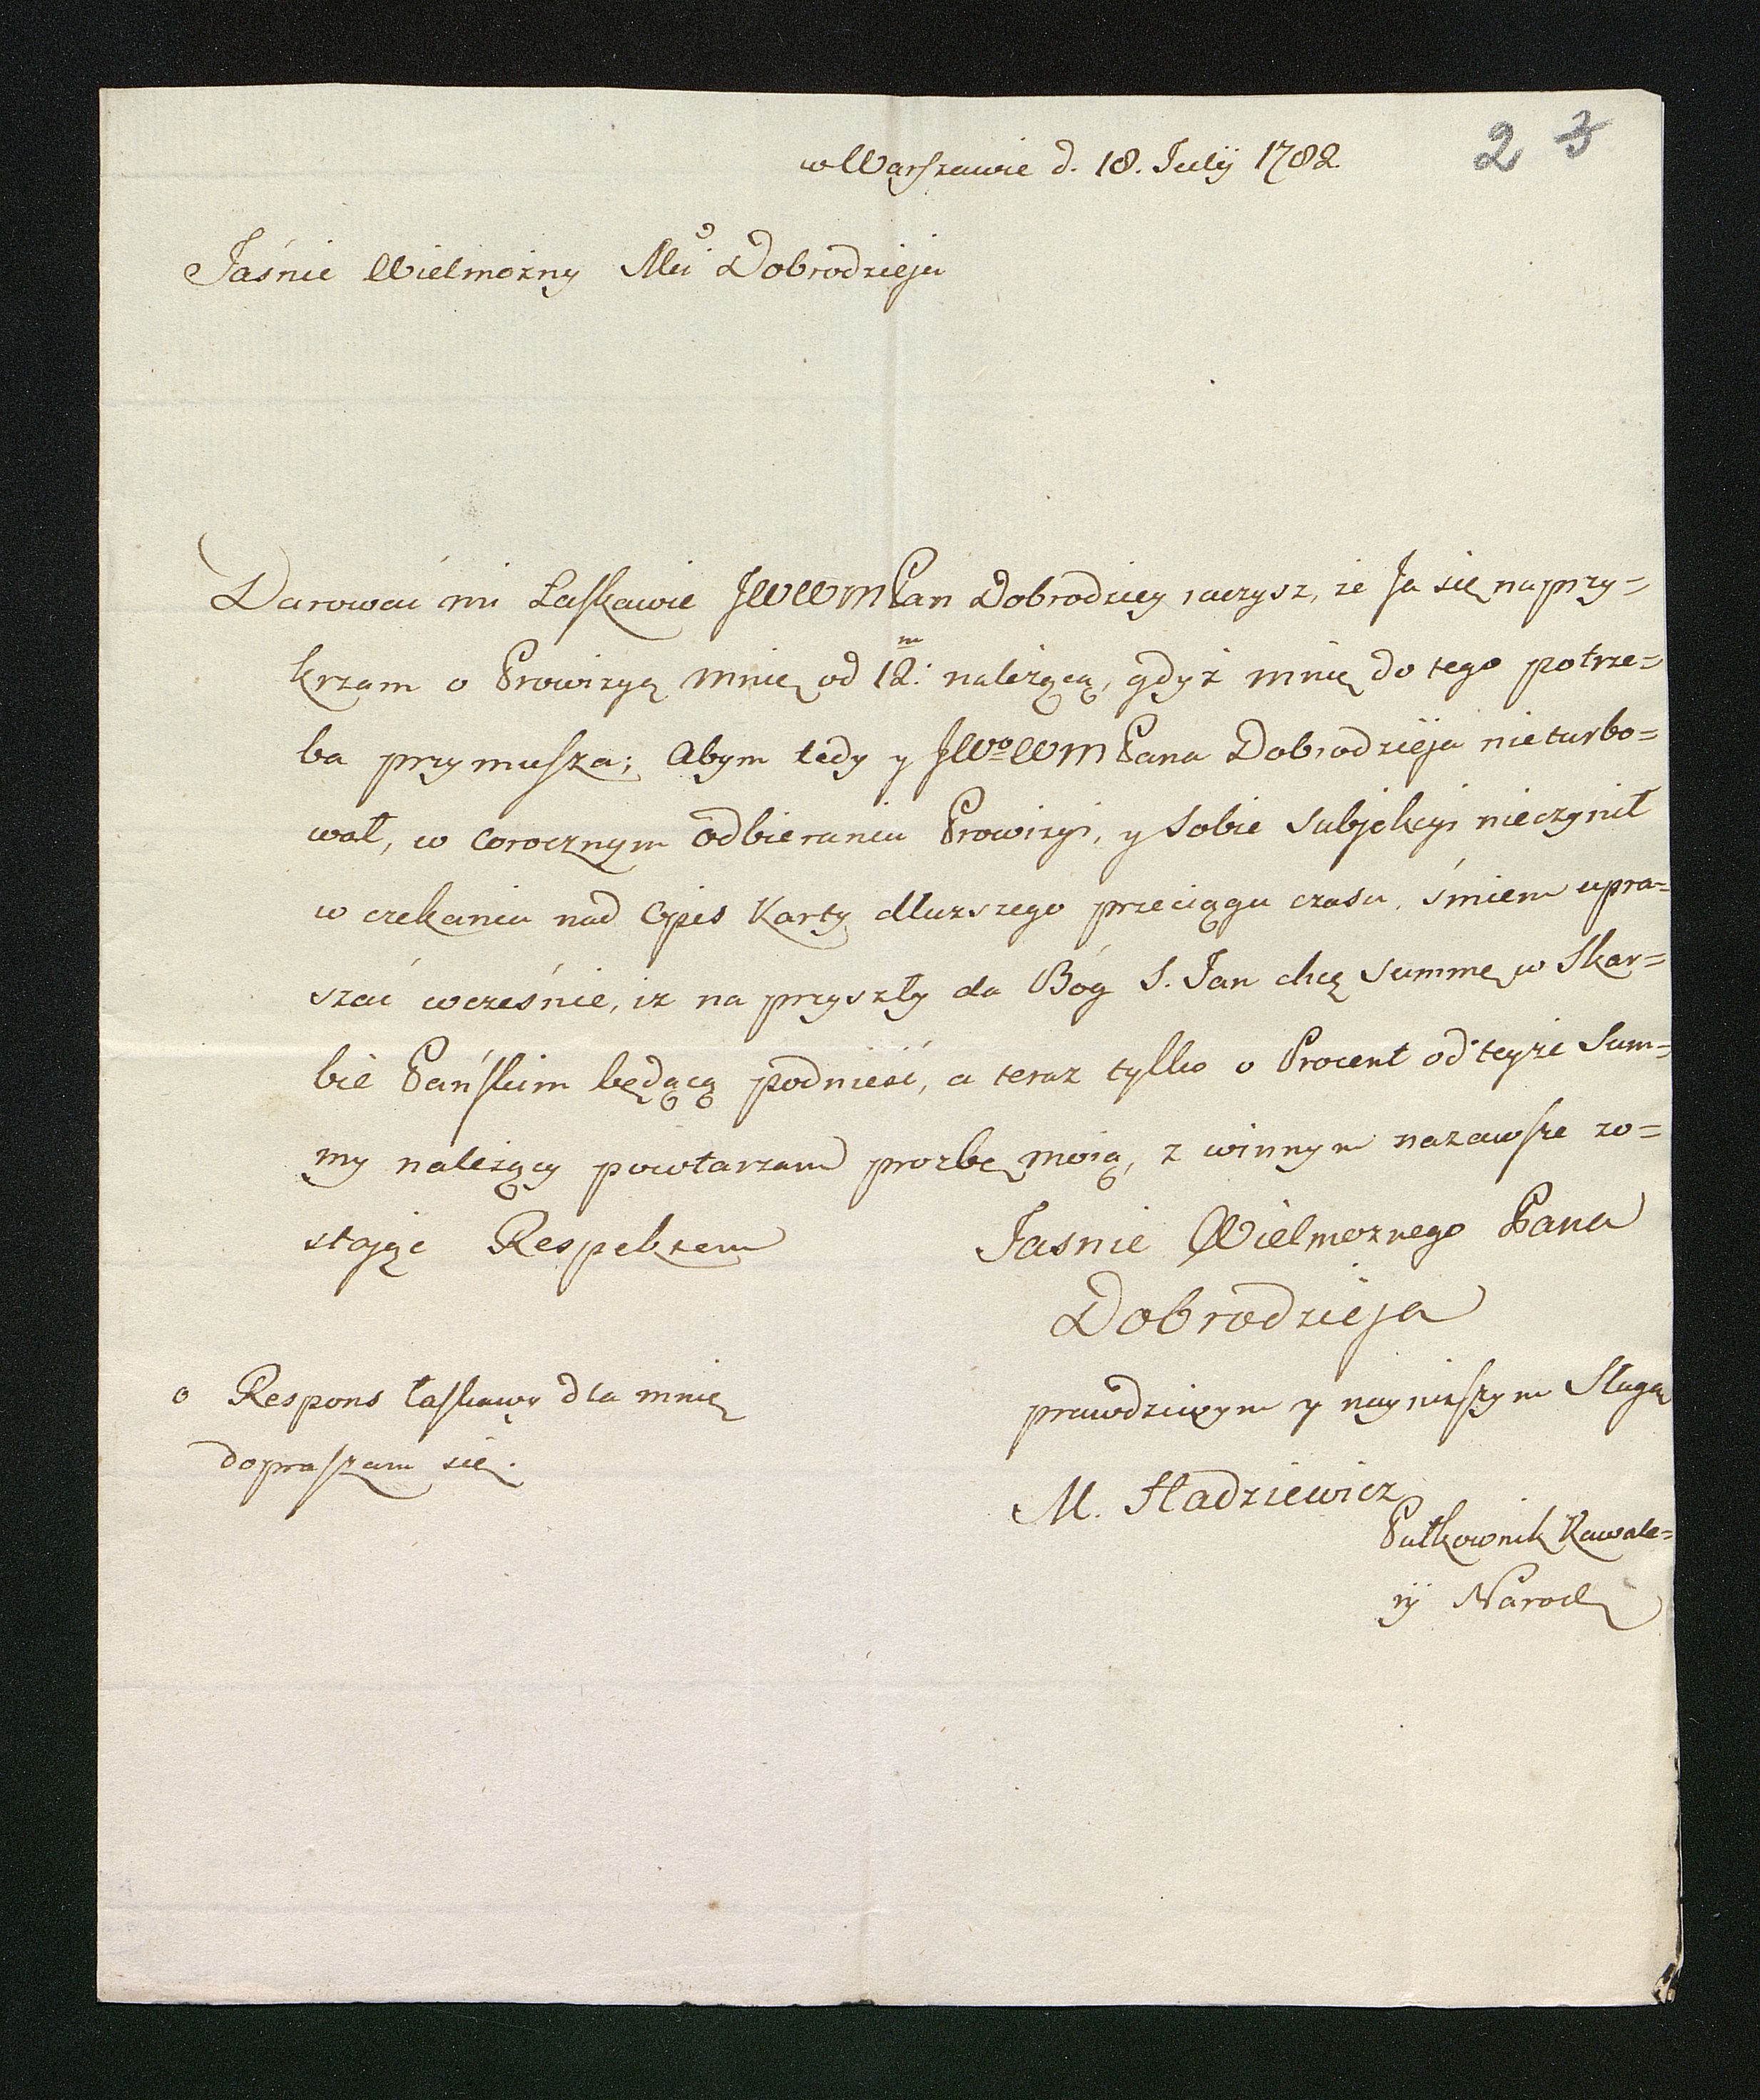 2 3
w Warszawie d. 18. Julÿ 1782
Jaśnie Wielmożny Mci Dobrodzieju
Darować mi Łaskawie JWWMPan Dobrodziey raczysz, że Ja się naprzy=
krzam o Prowizyą mnię od 12.m należącą, gdyż mnię do tego potrze=
ba przymusza; Abym tedy y JWoWMPana Dobrodzieja nieturbo=
wał, w corocznym odbieraniu Prowizyi, y Sobie Subjekcyi nieczynił
w czekaniu nad Opis Karty dłuższego przeciągu czasu, śmiem upra=
szać wcześnie, iż na przyszły da Bóg S. Jan chcę Summę w Skar=
bie Pańskim będącą podnieść, a teraz tylko o Procent od teyże Sum=
my należący powtarzam prozbę moią, z winnym nazawsze zo=
stając Respektem
Jasnie Wielmoznego Pana
Dobrodzieja
o Respons łaskawy dla mnię
dopraszam się.
prawdziwym y nayniższym Sługą
M. Hadziewicz
Pułkownik Kawale=
rÿ Narod